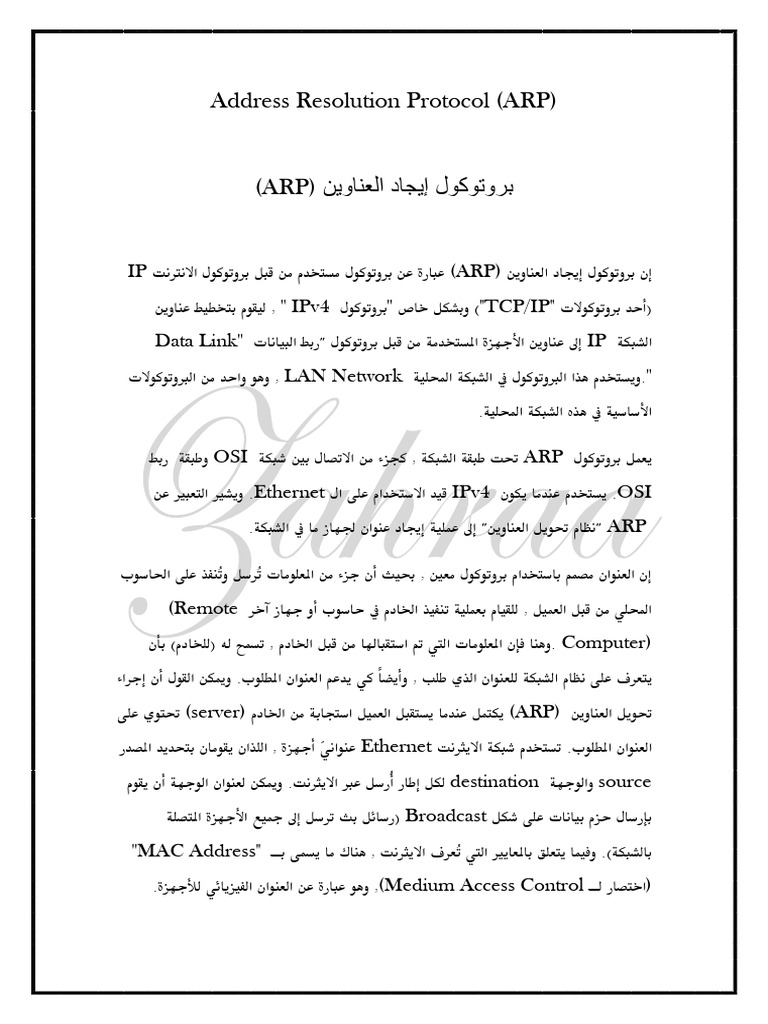 Address Resolution Protocol (ARP)
بروتوكول إيجاد العناوين (ARP)
إن بروتوكول إيجاد العناوين (ARP) عبارة عن بروتوكول مستخدم من قبل بروتوكول الانترنت IP
(أحد بروتوكولات "TCP/IP") وبشكل خاص "بروتوكول IPv4 " , ليقوم بتخطيط عناوين
الشبكة IP إلى عناوين الأجهزة المستخدمة من قبل بروتوكول "ربط البيانات Data Link"
".ويستخدم هذا البروتوكول في الشبكة المحلية LAN Network , وهو واحد من البروتوكولات
الأساسية في هذه الشبكة المحلية.
يعمل بروتوكول ARP تحت طبقة الشبكة , كجزء من الاتصال بين شبكة OSI وطبقة ربط
OSI. يستخدم عندما يكون IPv4 قيد الاستخدام على ال Ethernet. ويشير التعبير عن
ARP "نظام تحويل العناوين" إلى عملية إيجاد عنوان لجهاز ما في الشبكة.
إن العنوان مصمم باستخدام بروتوكول معين , بحيث أن جزء من المعلومات تُرسل وتُنفذ على الحاسوب
المحلي من قبل العميل , للقيام بعملية تنفيذ الخادم في حاسوب أو جهاز آخر Remote)
Computer) .وهنا فإن المعلومات التي تم استقبالها من قبل الخادم , تسمح له (للخادم) بأن
يتعرف على نظام الشبكة للعنوان الذي طلب , وأيضاً كي يدعم العنوان المطلوب. ويمكن القول أن إجراء
تحويل العناوين (ARP) يكتمل عندما يستقبل العميل استجابة من الخادم (server) تحتوي على
العنوان المطلوب. تستخدم شبكة الايثرنت Ethernet عنوانيَ أجهزة , اللذان يقومان بتحديد المصدر
source والوجهة destination لكل إطار أُرسل عبر الايثرنت. ويمكن لعنوان الوجهة أن يقوم
بإرسال حزم بيانات على شكل Broadcast (رسائل بث ترسل إلى جميع الأجهزة المتصلة
بالشبكة). وفيما يتعلق بالمعايير التي تُعرف الايثرنت , هناك ما يسمى بـــ "MAC Address"
(اختصار لـــ Medium Access Control), وهو عبارة عن العنوان الفيزيائي للأجهزة.
Zahraa